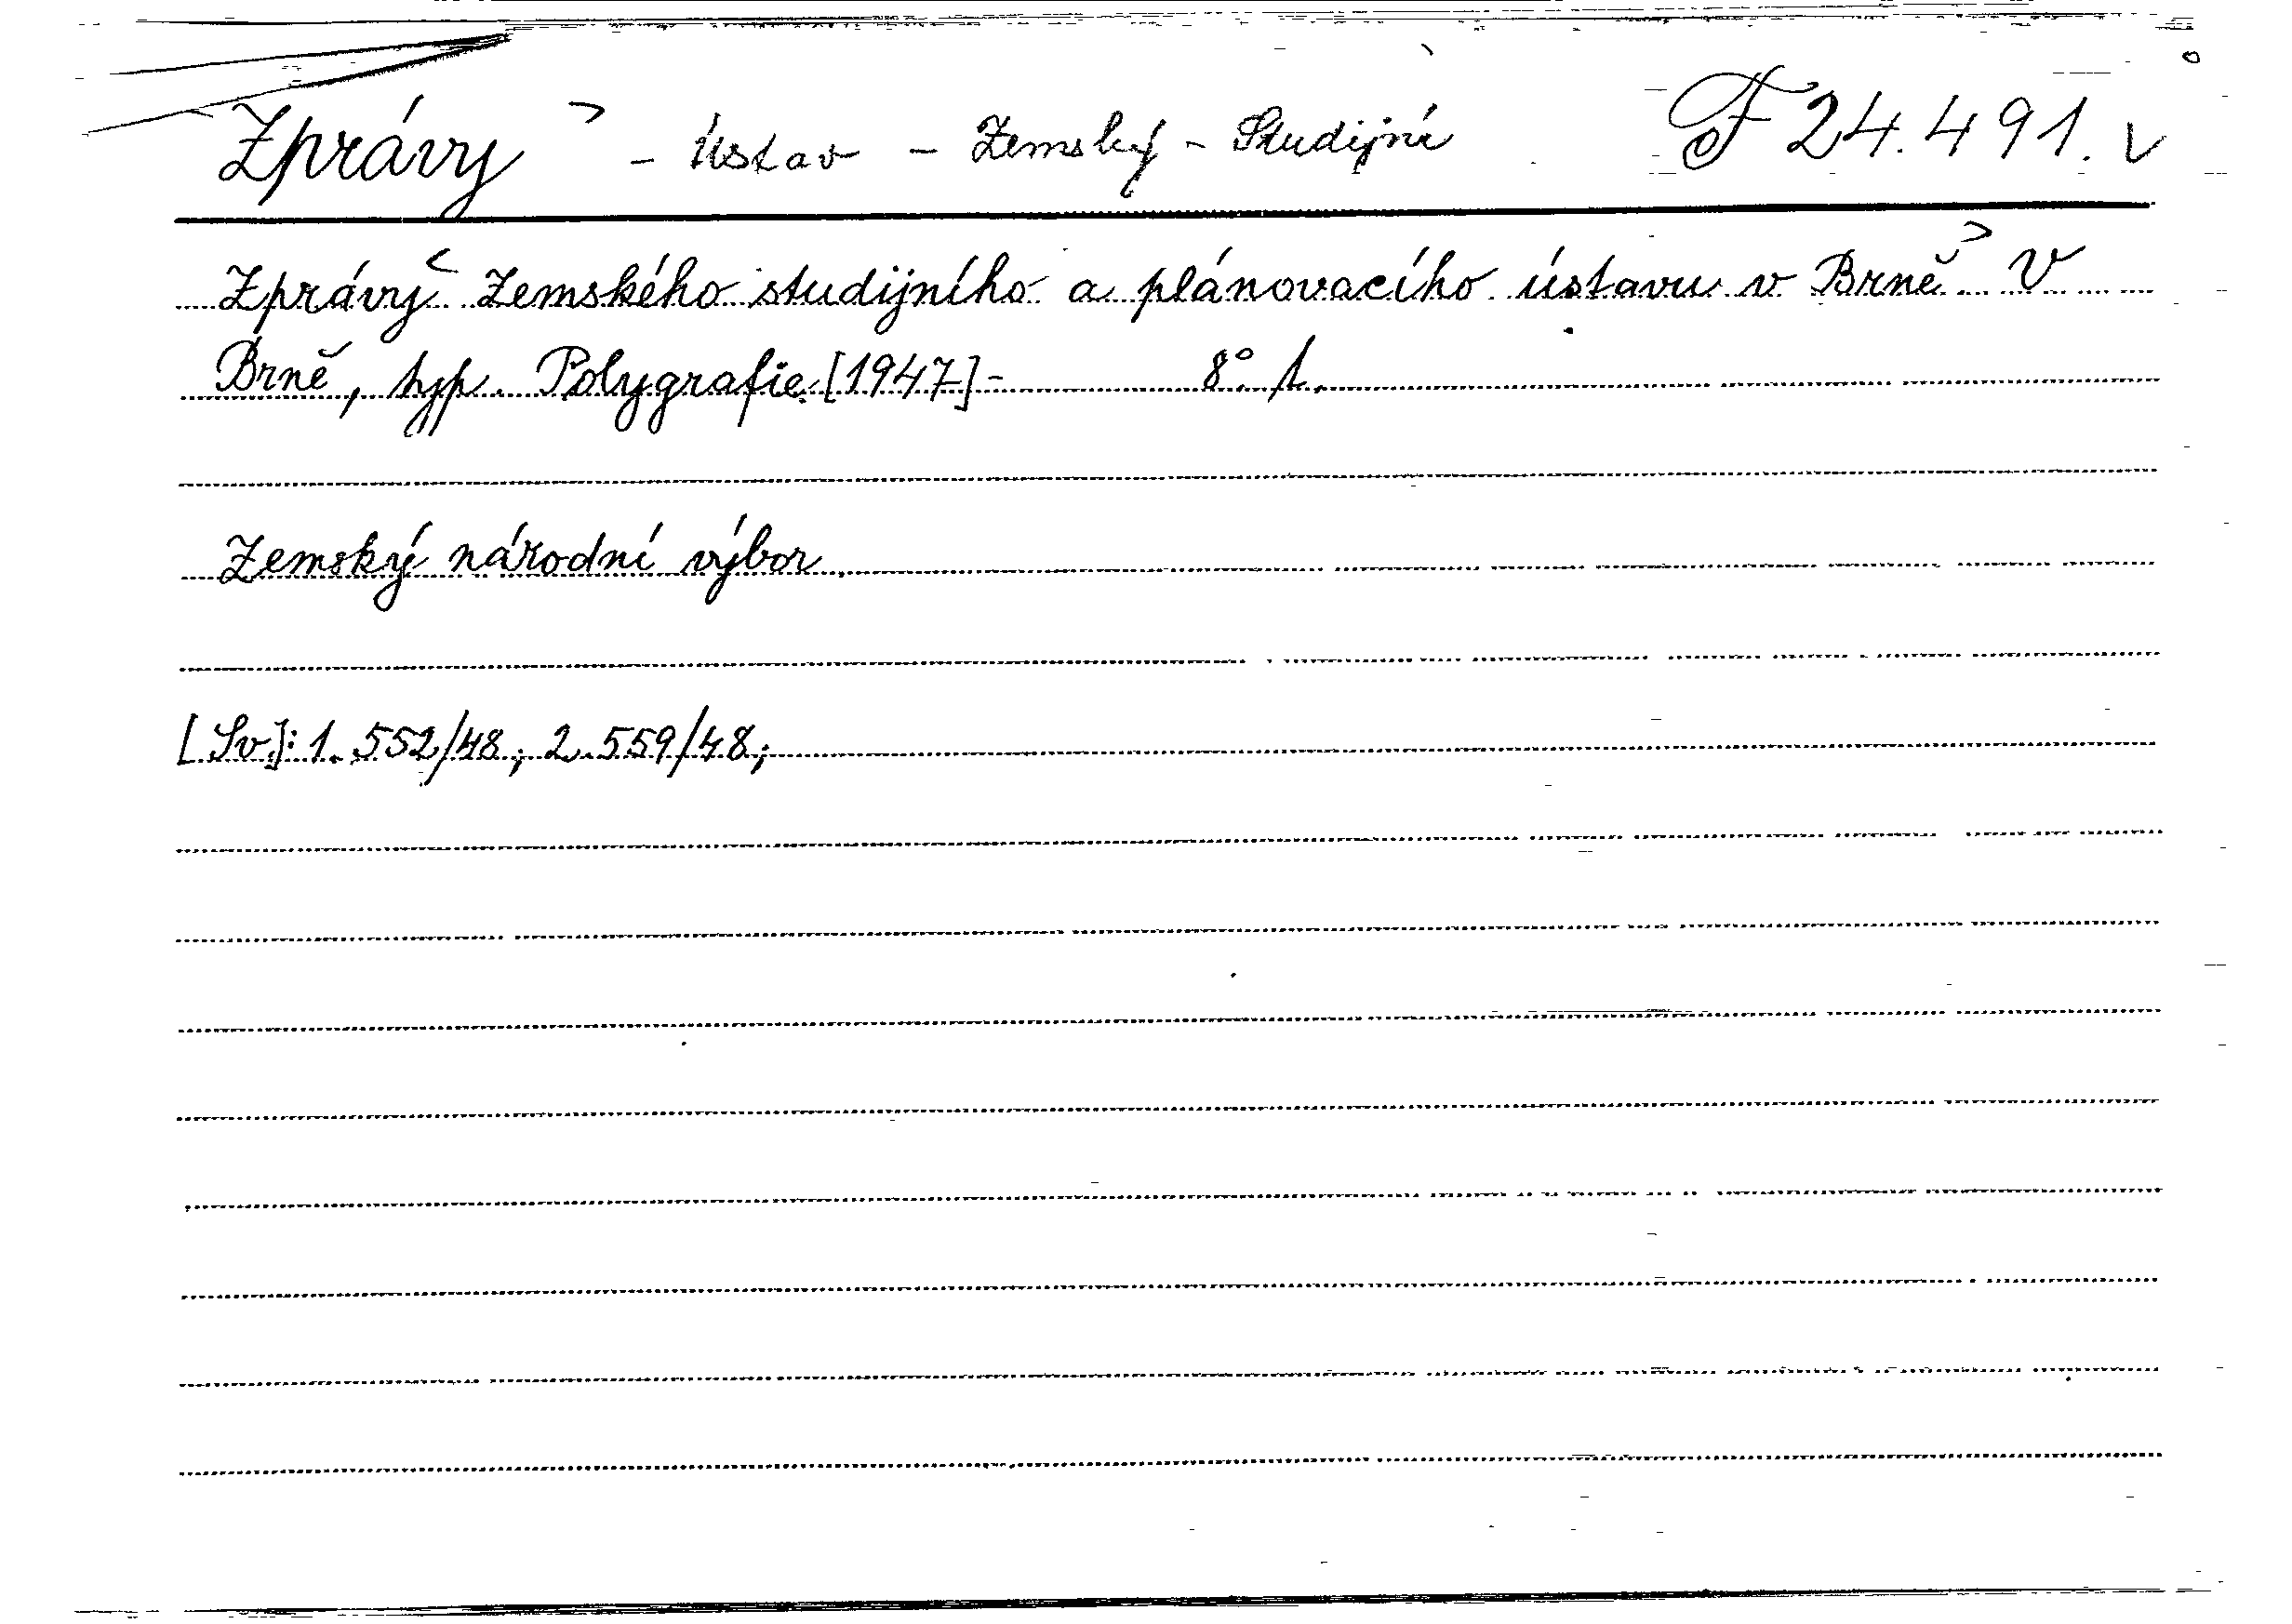 Zprávy - Ústav - Zemský - Studijní F 24.491.
Zprávy Zemského studijního a plánovacího ústavu v Brně. V
Brně, typ. Polygrafie [1947]- 8°. 1.
Zemský národní výbor.
[Sv.]: 1. 552/48; 2. 559/48;